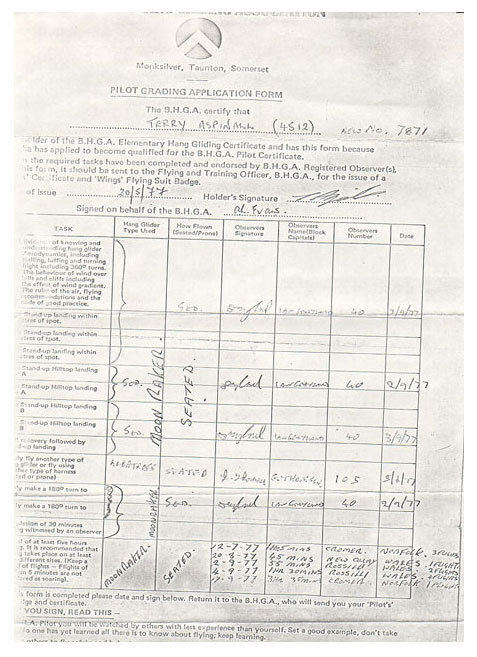 Monksilver, Taunton, Somerset
PILOT GRADING APPLICATION FORM
The B.H.G.A. certify that
TERRY ASPINALL (4512) NEW NO. 7871
holder of the B.H.G.A. Elementary Hang Gliding Certificate and has this form because
he has applied to become qualified for the B.H.G.A. Pilot Certificate.
the required tasks have been completed and endorsed by B.H.G.A. Registered Observer(s),
this form, it should be sent to the Flying and Training Officer, B.H.G.A., for the issue of a
Certificate and 'Wings' Flying Suit Badge.
of issue 20/5/77 Holder's Signature
Signed on behalf of the B.H.G.A. Evans.
TASK
Hang Glider Type Used
How Flown (Seated/Prone)
Observers Signature
Observers Name (Block Capitals)
Observers Number
Date
Evidence of knowing and
understanding hang glider
Aerodynamics, including
stalling, luffing and turning
flight including 360° turns.
The behaviour of wind over
hills and cliffs including
the effect of wind gradient.
The rules of the air, flying
recommendations and the
code of good practice.
SED. 40 2/9/77
Stand-up landing within
metres of spot.
Stand-up landing within
metres of spot.
Stand-up landing within
metres of spot.
MOON RAKER SEATED.
Stand-up Hilltop landing
A
Stand-up Hilltop landing
A
SED. 40 2/9/77
Stand-up Hilltop landing
B
Stand-up Hilltop landing
B
SED. 40 3/9/77
recovery followed by
landing
fly another type of
glider or fly using
other type of harness
(seated or prone)
ALBATROSS SEATED 105
make a 180° turn to
make a 180° turn to
MOONRAKER SED. 40 2/9/77
30 minutes
witnessed by an observer
of at least five hours
It is recommended that
takes place on at least
different sites. (Keep a
of flights – Flights of
than 5 minutes are not
as soaring).
MOONRAKER. SEATED.
12-7-77 CROMER. NORFOLK. FLIGHTS
20-8-77 45 MINS NEW QUAY WALES 1 FLIGHT
2-9-77 55 MINS ROSSILI WALES FLIGHTS
1HR 30 MINS ROSSILI WALES FLIGHTS
17-9-77 3HR CROMER NORFOLK 1 FLIGHT
form is completed please date and sign below. Return it to the B.H.G.A., who will send you your 'Pilot's'
and certificate.
YOU SIGN, READ THIS –
Pilot you will be watched by others with less experience than yourself. Set a good example, don't take
no one has yet learned all there is to know about flying; keep learning.